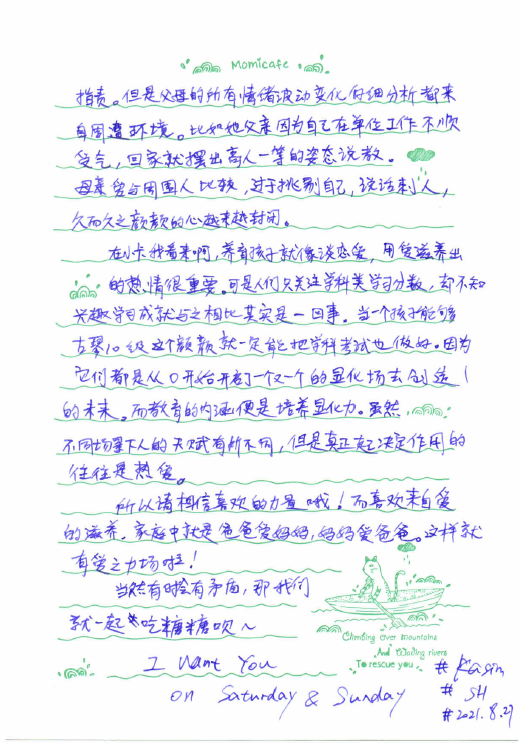 Momicafe
指责。但是父母的所有情绪波动变化的细分析都来
自周遭环境。比如她父亲因为自己在单位工作不顺
受气,回家就摆出高人一等的姿态说教。
母亲爱与周围人比较,过于挑剔自己,说话刺人,
久而久之颜颜的心越来越封闭。
在小卡我看来啊,养育孩子就像谈恋爱,用爱滋养出
的热情很重要。可是人们只关注学科类学习分数,却不知
兴趣学习成就与之相比其实是一回事。当一个孩子能够
古琴10级这个颜颜就一定能把学科考试也做好。因为
它们都是从0开始开启一个又一个的显化场去创造
的未来。而教育的内涵便是培养显化力。虽然
不同场景下人的天赋有所不同,但是真正起决定作用的
往往是热爱。
所以请相信喜欢的力量哦!而喜欢来自爱
的滋养。家庭中就是爸爸爱妈妈,妈妈爱爸爸。这样就
有爱之力场啦!
当然有时会有矛盾,那我们
就一起吃糖糖呗~
Climbing Over mountains
And Wading rivers
To rescue you
I Want You
on Saturday & Sunday
# Kasin
# SH
# 2021.8.27